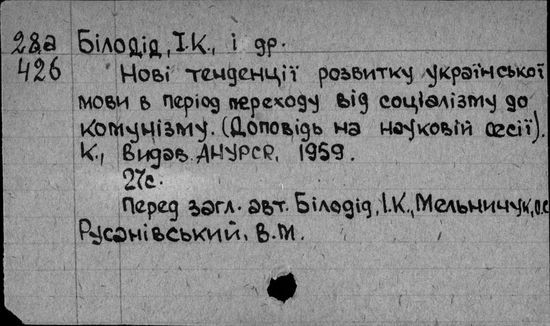 28а Білодід, І.К., і др.
426 Нові тенденції розвитку української
мови в період переходу від соціалізму до
комунізму. (Доповідь на науковій сесії).
К., Видав. АНУРСР, 1959.
27с.
Перед загл. авт. Білодід, І.К., Мельничук, О.С.
Русанівський, В.М.